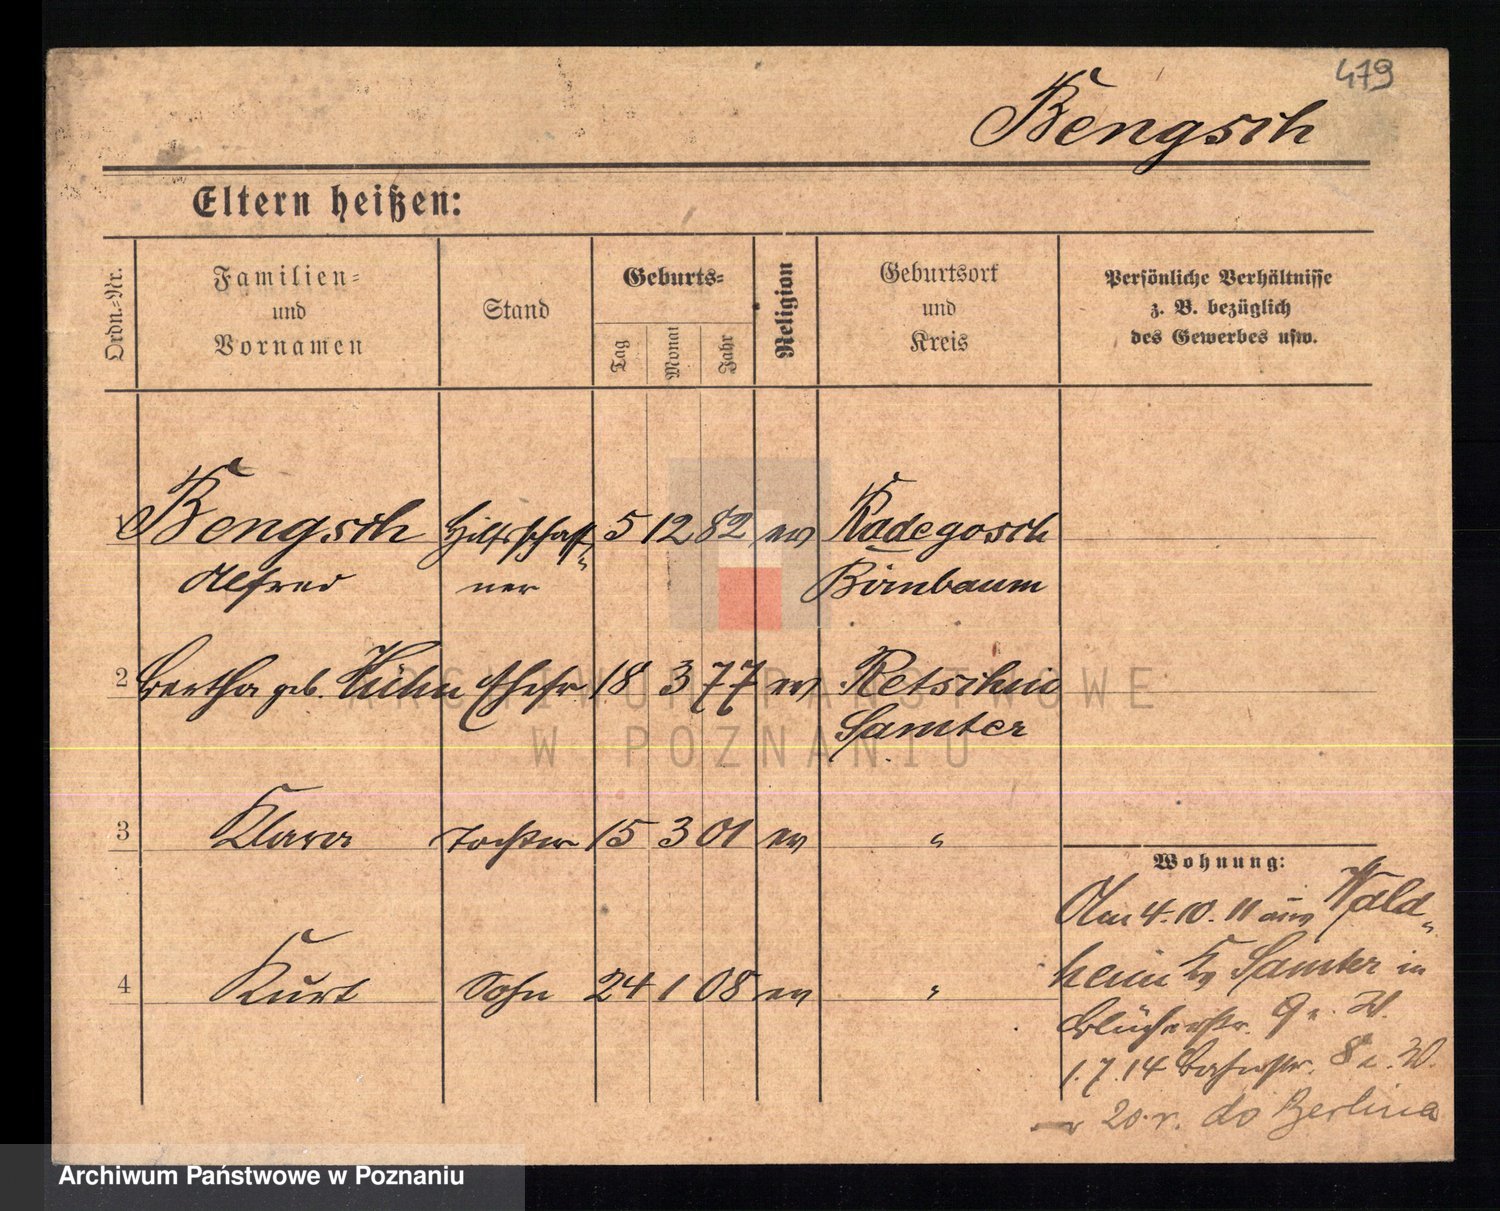 479
Bengsch
Eltern heißen:
Ordn.=Nr.
Familien=
und
Vornamen
Stand
Geburts=
Tag
Monat
Jahr
Religion
Geburtsort
und
Kreis
Persönliche Verhältnisse
z. B. bezüglich
des Gewerbes usw.
1 Bengsch Hilfsschaff= 5 12 82 ev Radegosch
Alfred ner Birnbaum
2 Bertha geb. Hühn Ehefr 18 3 77 ev Retschin
Samter
3 Klara Tochter 15 3 01 ev "
4 Kurt Sohn 24 1 08 ev "
Wohnung:
Am 4.10.11 aus Wald=
heim Samter in
Blücherstr. 9
1.7.14 Bahnstr. 8
20 r. do Berlina
ARCHIWUM PAŃSTWOWE
W POZNANIU
Archiwum Państwowe w Poznaniu